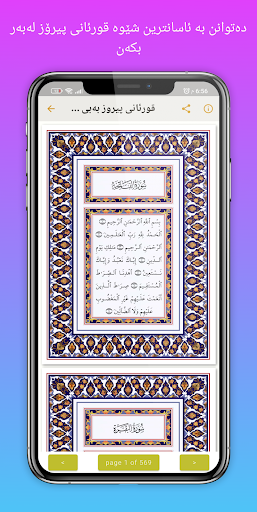 دەتوانن بە ئاسانترین شێوە قورئانی پیرۆز لەبەر
بکەن
6:56
قورئانی پیروز بەبی ...
سُورَةُ الفَاتِحَة
بِسْمِ اللَّهِ الرَّحْمَٰنِ الرَّحِيمِ ۝
الْحَمْدُ لِلَّهِ رَبِّ الْعَالَمِينَ ۝
الرَّحْمَٰنِ الرَّحِيمِ ۝ مَالِكِ يَوْمِ
الدِّينِ ۝ إِيَّاكَ نَعْبُدُ وَإِيَّاكَ
نَسْتَعِينُ ۝ اهْدِنَا الصِّرَاطَ
الْمُسْتَقِيمَ ۝ صِرَاطَ الَّذِينَ
أَنْعَمْتَ عَلَيْهِمْ غَيْرِ الْمَغْضُوبِ
عَلَيْهِمْ وَلَا الضَّالِّينَ ۝
سُورَةُ البَقَرَة
page 1 of 569